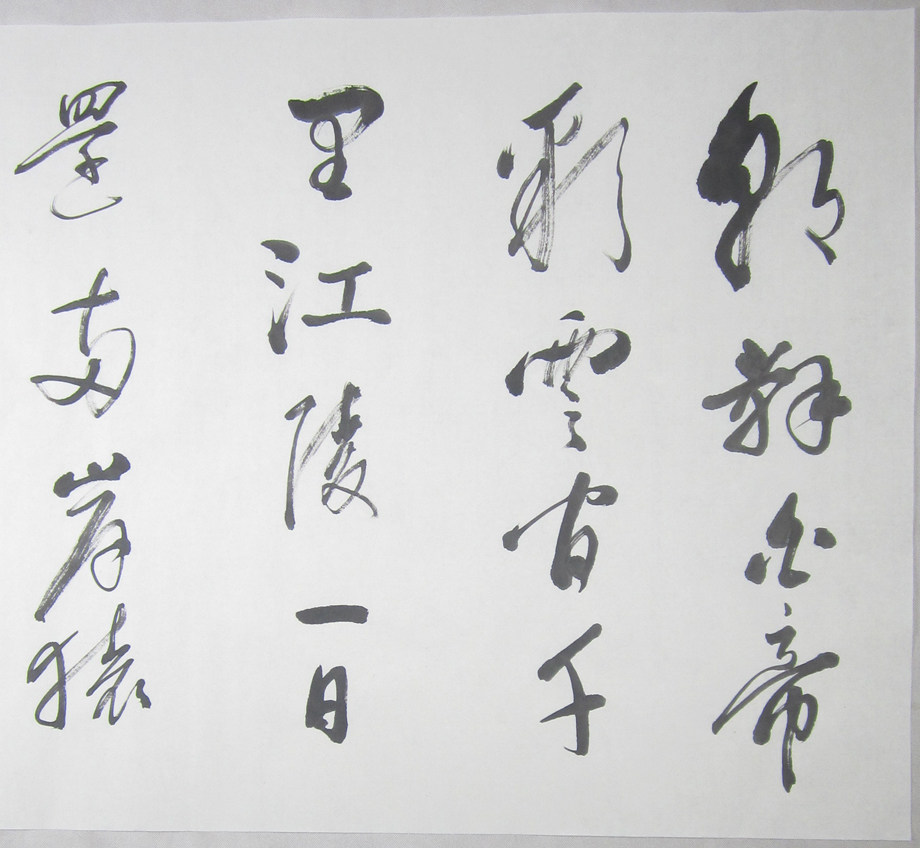 朝辭白帝
彩雲間千
里江陵一日
還兩岸猿